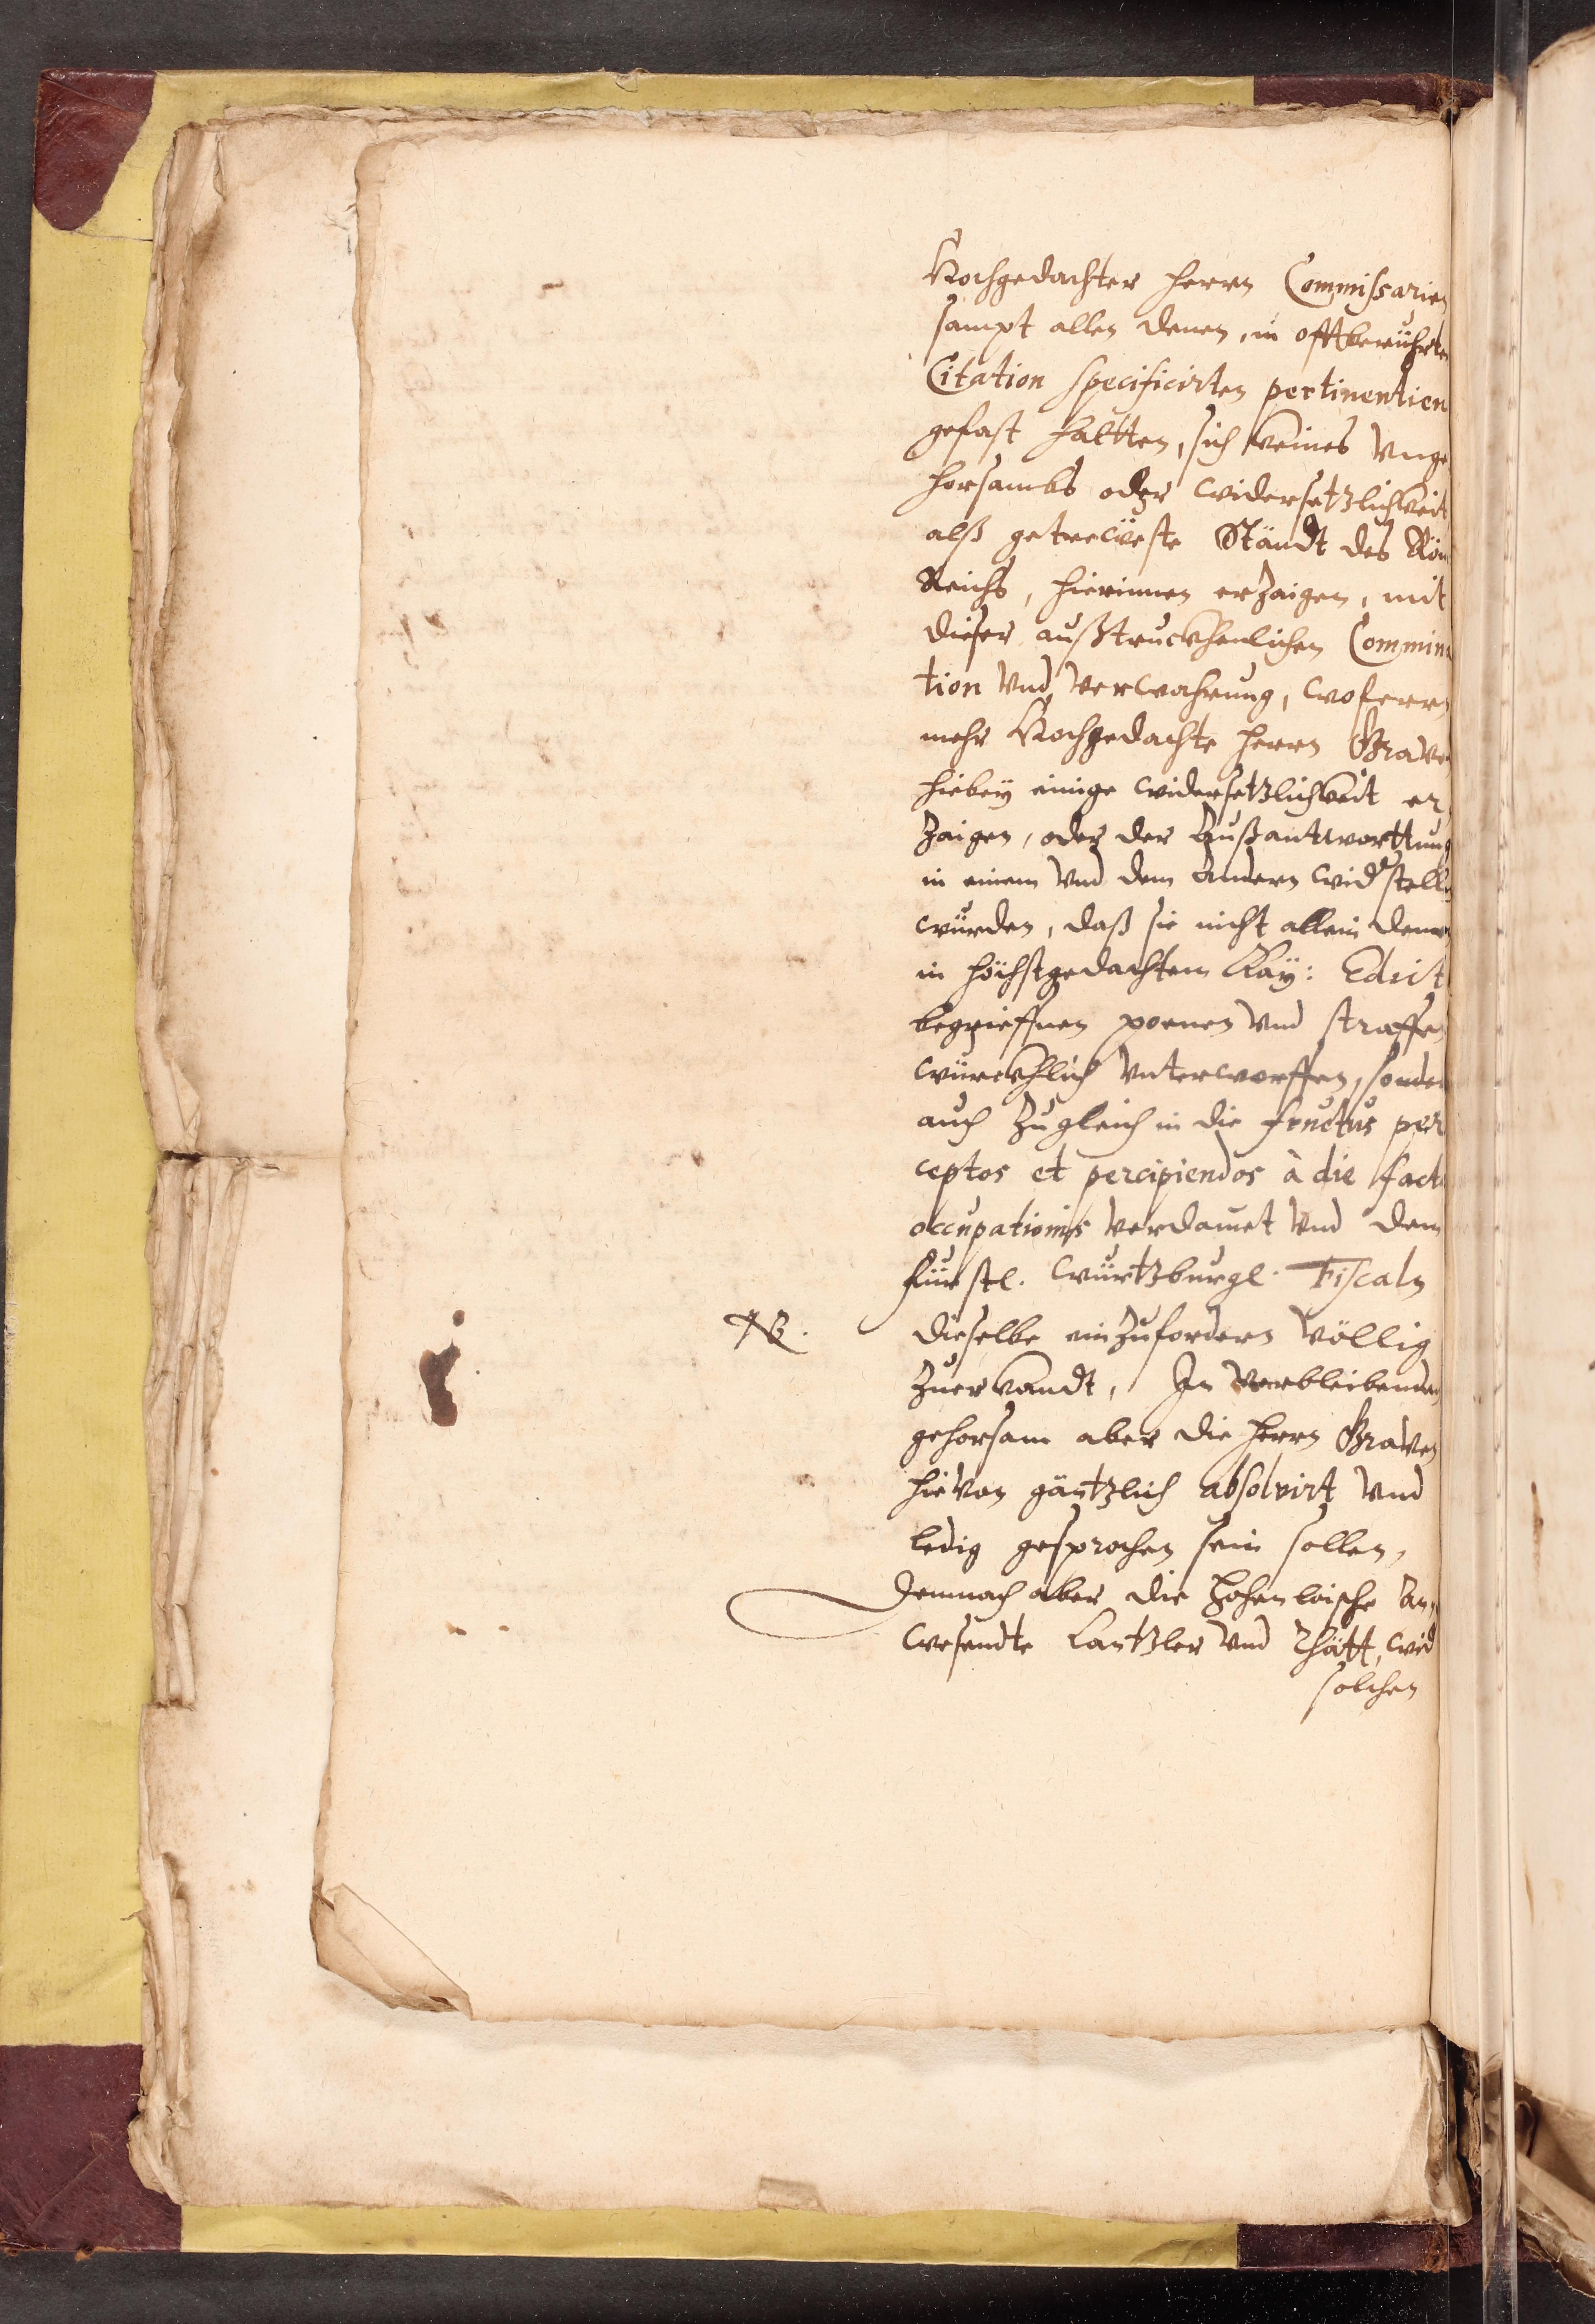 Hochgedachter Herrn Commissarien
sampt allen denen, in offtberührten
Citation specificirten pertinentien
gefast haltten, sich keines Vnge
horsambs oder widersetzlichkeit
alß getreweste Ständt des Röm
Reichs, hierinnen erzaigen, mit
dieser außtruckhenlichen Commina
tion Vnd Verwahrung, wofern
mehr Hochgedachte Herrn Graven
hiebey einige widersetzlichkeit er
zaigen, oder der Außantworttung
in einem Vnd dem Andern wid stellen
würden, daß sie nicht allein denen
in höchstgedachtem Kay: Edict
begrieffnen poenen Vnd straffen
würckhlich Vnterworffen, sonder
auch zugleich in die fructus per
ceptos et percipiendos à die factæ
occupationis Verdamet Vnd dem
fürstl. Würtzburgl. Fiscaln
NB. dieselbe einzufordern Völlig
zuerkandt, In Verbleibenden
gehorsam aber die Herrn Graven
hieVon gäntzlich absolvirt Vnd
ledig gesprochen sein sollen,
Demnach aber die Hohenloische An,
wesendte Cantzler Vnd Rhätt, wid
solchen